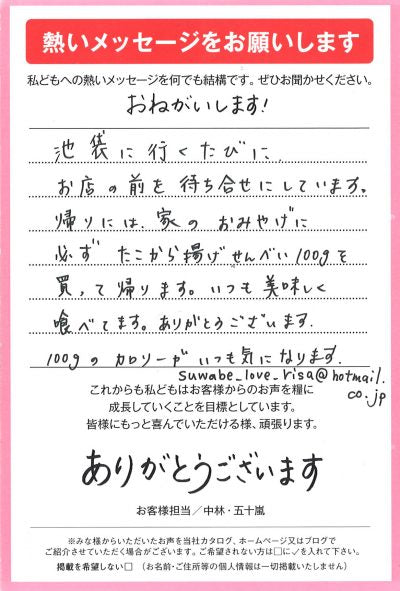 熱いメッセージをお願いします
私どもへの熱いメッセージを何でも結構です。ぜひお聞かせください。
おねがいします!
池袋に行くたびに、
お店の前を待ち合せにしています。
帰りには、家のおみやげに
必ず たこから揚げせんべい100gを
買って帰ります。いつも美味しく
喰べてます。ありがとうございます.
100gのカロリーがいつも気になります.
suwabe_love_risa@hotmail.
co.jp
これからも私どもはお客様からのお声を糧に
成長していくことを目標としています。
皆様にもっと喜んでいただける様、頑張ります。
ありがとうございます
お客様担当/中林・五十嵐
※みな様からいただいたお声を当社カタログ、ホームページ又はブログで
ご紹介させていただく場合がございます。ご希望されない方は□に✓を入れて下さい。
掲載を希望しない□ (お名前・ご住所等の個人情報は一切掲載いたしません)